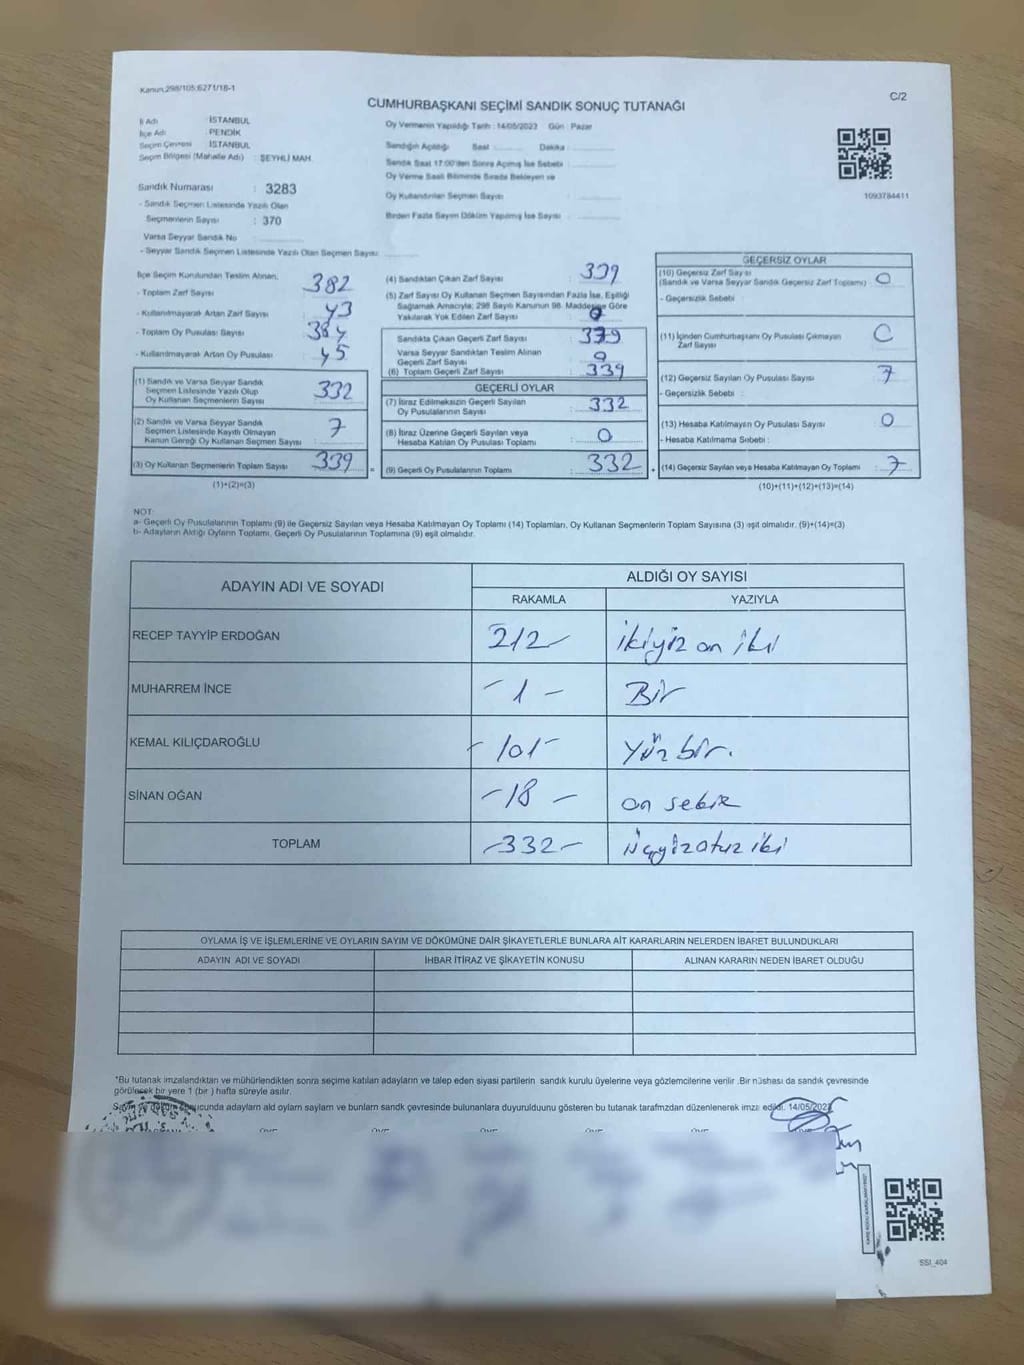 Kanun:298/105;6271/18-1
C/2
CUMHURBAŞKANI SEÇİMİ SANDIK SONUÇ TUTANAĞI
İl Adı : İSTANBUL
İlçe Adı : PENDİK
Seçim Çevresi : İSTANBUL
Seçim Bölgesi (Mahalle Adı) : ŞEYHLİ MAH.
Sandık Numarası : 3283
- Sandık Seçmen Listesinde Yazılı Olan
Seçmenlerin Sayısı : 370
Varsa Seyyar Sandık No
- Seyyar Sandık Seçmen Listesinde Yazılı Olan Seçmen Sayısı:
Oy Vermenin Yapıldığı Tarih : 14/05/2023 Gün : Pazar
Sandığın Açıldığı Saat Dakika :
Sandık Saat 17:00'den Sonra Açılmış İse Sebebi :
Oy Verme Saati Bitiminde Sırada Bekleyen ve
Oy Kullandırılan Seçmen Sayısı :
Birden Fazla Sayım Döküm Yapılmış İse Sayısı :
1093784411
İlçe Seçim Kurulundan Teslim Alınan;
- Toplam Zarf Sayısı : 382
- Kullanılmayarak Artan Zarf Sayısı : 43
- Toplam Oy Pusulası Sayısı : 384
- Kullanılmayarak Artan Oy Pusulası : 45
(1) Sandık ve Varsa Seyyar Sandık
Seçmen Listesinde Yazılı Olup
Oy Kullanan Seçmenlerin Sayısı : 332
(2) Sandık ve Varsa Seyyar Sandık
Seçmen Listesinde Kayıtlı Olmayan
Kanun Gereği Oy Kullanan Seçmen Sayısı : 7
(3) Oy Kullanan Seçmenlerin Toplam Sayısı : 339
(1)+(2)=(3)
(4) Sandıktan Çıkan Zarf Sayısı : 339
(5) Zarf Sayısı Oy Kullanan Seçmen Sayısından Fazla İse, Eşitliği
Sağlamak Amacıyla; 298 Sayılı Kanunun 98. Maddesine Göre
Yakılarak Yok Edilen Zarf Sayısı : 0
Sandıkta Çıkan Geçerli Zarf Sayısı : 339
Varsa Seyyar Sandıktan Teslim Alınan
Geçerli Zarf Sayısı : 0
(6) Toplam Geçerli Zarf Sayısı : 339
GEÇERLİ OYLAR
(7) İtiraz Edilmeksizin Geçerli Sayılan
Oy Pusulalarının Sayısı : 332
(8) İtiraz Üzerine Geçerli Sayılan veya
Hesaba Katılan Oy Pusulası Toplamı : 0
= (9) Geçerli Oy Pusulalarının Toplamı : 332
GEÇERSİZ OYLAR
(10) Geçersiz Zarf Sayısı
(Sandık ve Varsa Seyyar Sandık Geçersiz Zarf Toplamı) : 0
- Geçersizlik Sebebi :
(11) İçinden Cumhurbaşkanı Oy Pusulası Çıkmayan
Zarf Sayısı : 0
(12) Geçersiz Sayılan Oy Pusulası Sayısı : 7
- Geçersizlik Sebebi :
(13) Hesaba Katılmayan Oy Pusulası Sayısı : 0
- Hesaba Katılmama Sebebi :
+ (14) Geçersiz Sayılan veya Hesaba Katılmayan Oy Toplamı : 7
(10)+(11)+(12)+(13)=(14)
NOT:
a- Geçerli Oy Pusulalarının Toplamı (9) ile Geçersiz Sayılan veya Hesaba Katılmayan Oy Toplamı (14) Toplamları, Oy Kullanan Seçmenlerin Toplam Sayısına (3) eşit olmalıdır. (9)+(14)=(3)
b- Adayların Aldığı Oyların Toplamı, Geçerli Oy Pusulalarının Toplamına (9) eşit olmalıdır.
ADAYIN ADI VE SOYADI
ALDIĞI OY SAYISI
RAKAMLA YAZIYLA
RECEP TAYYİP ERDOĞAN 212- ikiyüz on iki
MUHARREM İNCE - 1 - Bir
KEMAL KILIÇDAROĞLU - 101- yüz bir.
SİNAN OĞAN -18 - on sekiz
TOPLAM -332- üçyüzotuz iki
OYLAMA İŞ VE İŞLEMLERİNE VE OYLARIN SAYIM VE DÖKÜMÜNE DAİR ŞİKAYETLERLE BUNLARA AİT KARARLARIN NELERDEN İBARET BULUNDUKLARI
ADAYIN ADI VE SOYADI İHBAR İTİRAZ VE ŞİKAYETİN KONUSU ALINAN KARARIN NEDEN İBARET OLDUĞU
*Bu tutanak imzalandıktan ve mühürlendikten sonra seçime katılan adayların ve talep eden siyasi partilerin sandık kurulu üyelerine veya gözlemcilerine verilir .Bir nüshası da sandık çevresinde
görülecek bir yere 1 (bir ) hafta süreyle asılır.
Sayım ve döküm sonucunda adayların aldı oyların sayların ve bunların sandk çevresinde bulunanlara duyurulduunu gösteren bu tutanak tarafmzdan düzenlenerek imza edildi. 14/05/2023
SSI_404